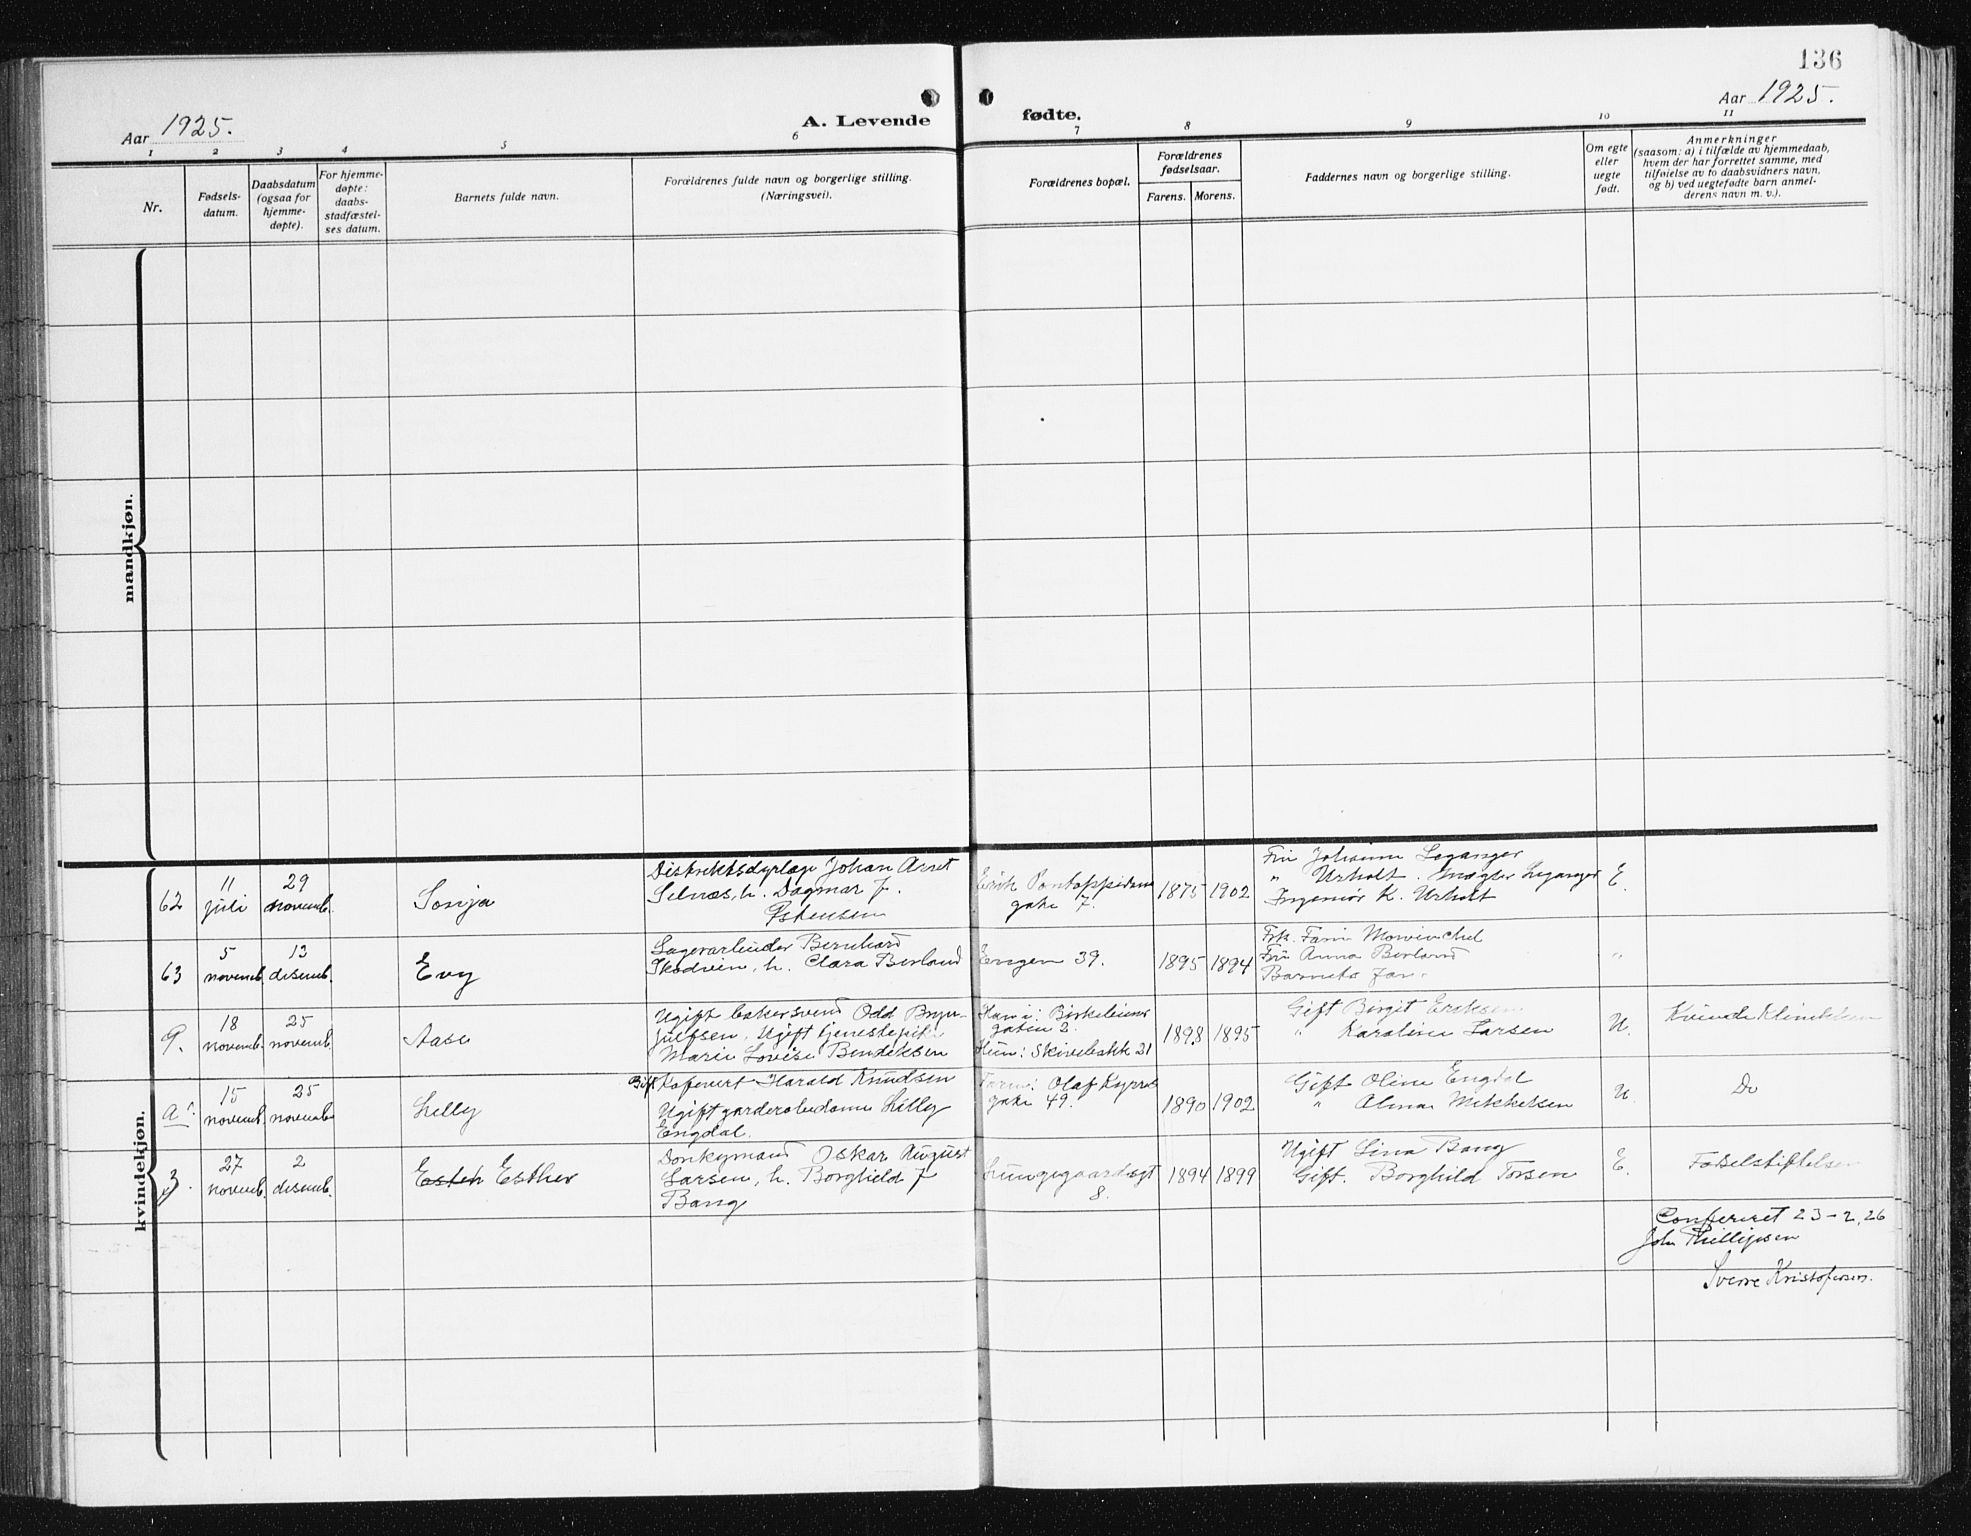 136
Aar 1925.
A. Levende fødte.
Aar 1925.
1 2 3 4 5 6 7 8 9 10 11
Nr.
Fødsels-
datum.
Daabsdatum
(ogsaa for
hjemme-
døpte).
For hjemme-
døpte:
daabs-
stadfæstel-
ses datum.
Barnets fulde navn.
Forældrenes fulde navn og borgerlige stilling.
(Næringsvei).
Forældrenes bopæl.
Forældrenes
fødselsaar.
Farens. Morens.
Faddernes navn og borgerlige stilling.
Om egte
eller
uegte
født.
Anmerkninger
(saasom: a) i tilfælde av hjemmedaab,
hvem der har forrettet samme, med
tilføielse av to daabsvidners navn,
og b) ved uegtefødte barn anmel-
derens navn m. v.).
mandkjøn.
kvindekjøn.
62
11
juli
29
novemb.
Sonja
Distriktsdyrlæge Johan Arnt
Selnæs, h. Dagmar f.
Erik Pontoppidans
gate 7.
1875 1902
Fru Johanne Leganger
" Urholt. Leganger
Ingeniør K. Urholt
E.
63
5
novemb.
13
desemb.
Evy
Lagerarbeider Bernhard
Skodvin, h. Clara Berland
Engen 39.
1895 1894
Frk. Fani Mowinckel
Fru Anna Berland
Barnets far.
"
9.
18
novemb.
25
novemb.
Aase
Ugift bakersvend Odd Bryn-
julfsen, Ugift tjenestepike
Marie Lovise Bendiksen
Han i: Birkeleiens
gaten 2.
Hun: Skivebakk 21
1898 1895
Gift Birgit Eriksen
" Karoline Larsen
U.
Kvindeklinikken
15
novemb.
25
novemb.
Lilly
Gift Harald Knudsen
Ugift garderobedame Lilly
Engdal.
Olaf Kyrres
gate 49.
1890 1902
Gift Oline Engdal
" Alma Mikkelsen
U.
Do
3.
27
novemb.
2
desemb.
Esther
Donkymand Oskar August
Larsen, h. Borghild f
Bang
Lungegaardsgt
8.
1894 1899
Ugift Lina Bang
Gift. Borghild Torsen
E.
Fødselstiftelsen
Confereret 23-2.26
John Phillipsen
Sverre Kristofersen.